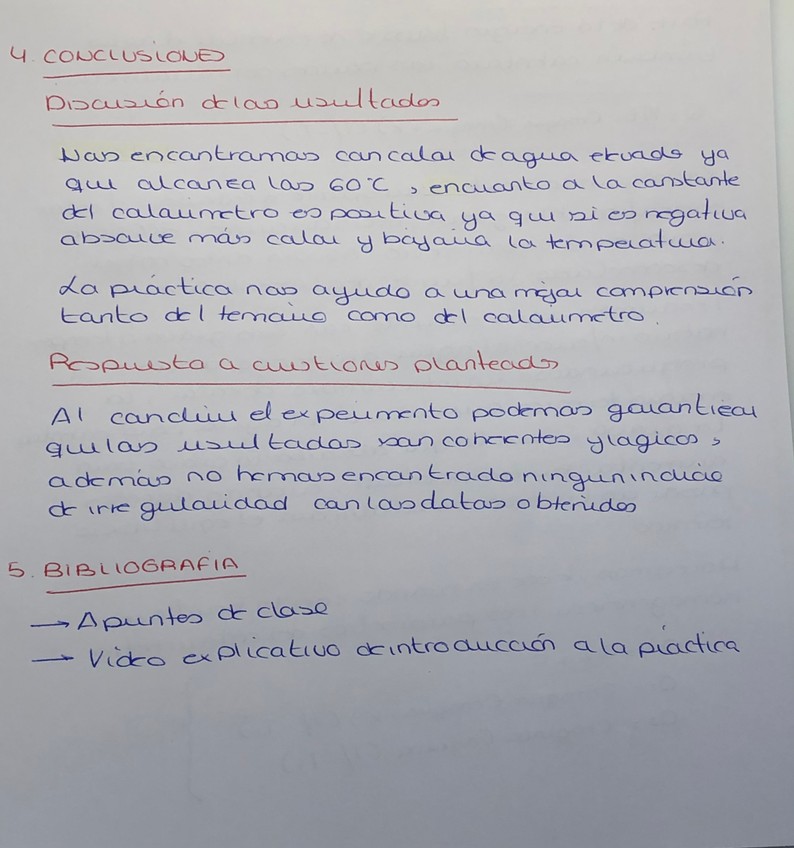 4. CONCLUSIONES
Discusión de los resultados
Nos encontramos con calor de agua elevado ya
que alcanza los 60°C, encuanto a la constante
del calorimetro es positiva ya que si es negativa
absorve más calor y bajaria la temperatura.
La práctica nos ayudo a una mejor comprensión
tanto del temario como del calorimetro.
Respuesta a cuestiones planteadas
Al concluir el experimento podemos garantizar
que los resultados son coherentes y logicos,
además no hemos encontrado ningun indicio
de irregularidad con los datos obtenidos
5. BIBLIOGRAFIA
→ Apuntes de clase
→ Video explicativo de introducción a la práctica